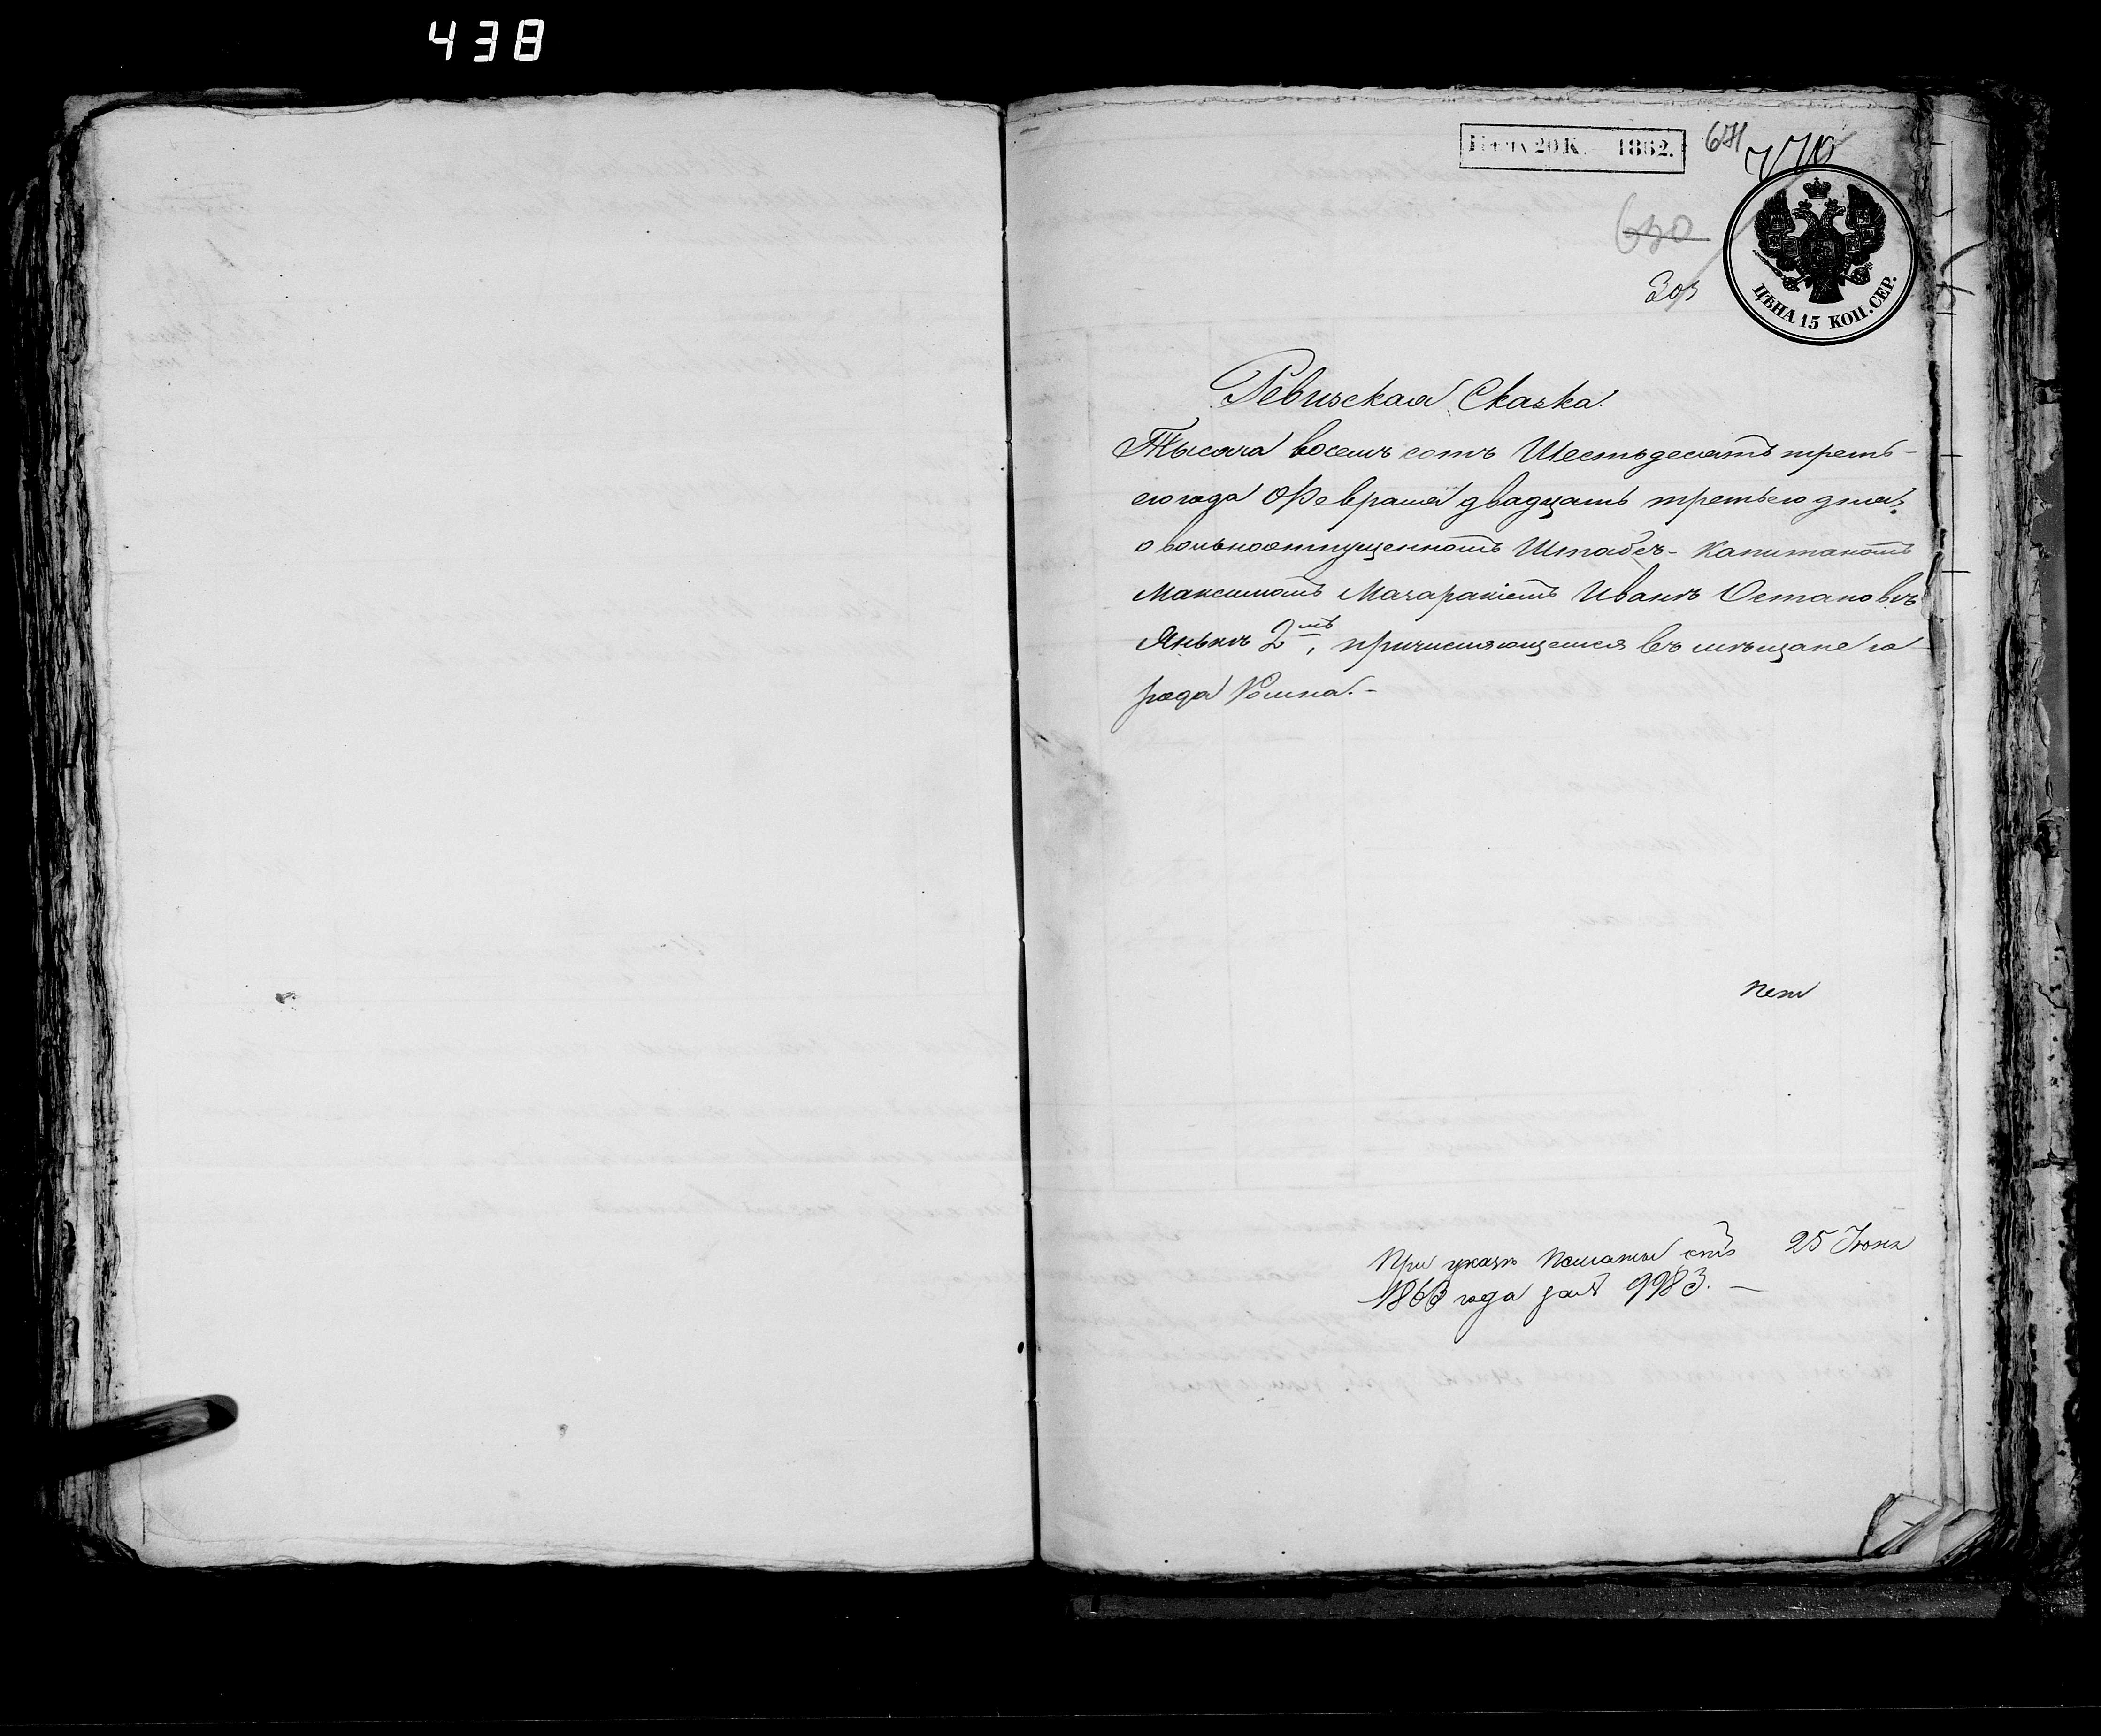 438
1862.
671
770
650
303
ЦѢНА 15 КОП. СЕР.
Ревизская Сказка.
Тысяча восемь сотъ Шестьдесятъ треть-
его года Февраля двадцать третьего дня,
о вольноотпущенномъ Штабсъ-Капитаномъ
Максимомъ Мачараніемъ Иванѣ Остаповѣ
Янькѣ 2мъ, причисляющемся въ мѣщане го
рода Ромна.-
При указѣ Палаты отъ 25 Іюня
1863 года за № 9983. —